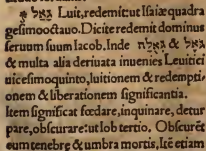 גאל Luit, redemit:ut Isaiæ quadra
gesimooctauo. Dicite redemit dominus
seruum suum Iacob. Inde גאלה & גאל
& multa alia deriuata inuenies Leuitici
uicesimoquinto, luitionem & redempti-
onem & liberationem significantia.
Item significat fœdare, inquinare, detur
pare, obscurare:ut Iob tertio. Obscurẽt
eum tenebre & umbra mortis, Ite etiam